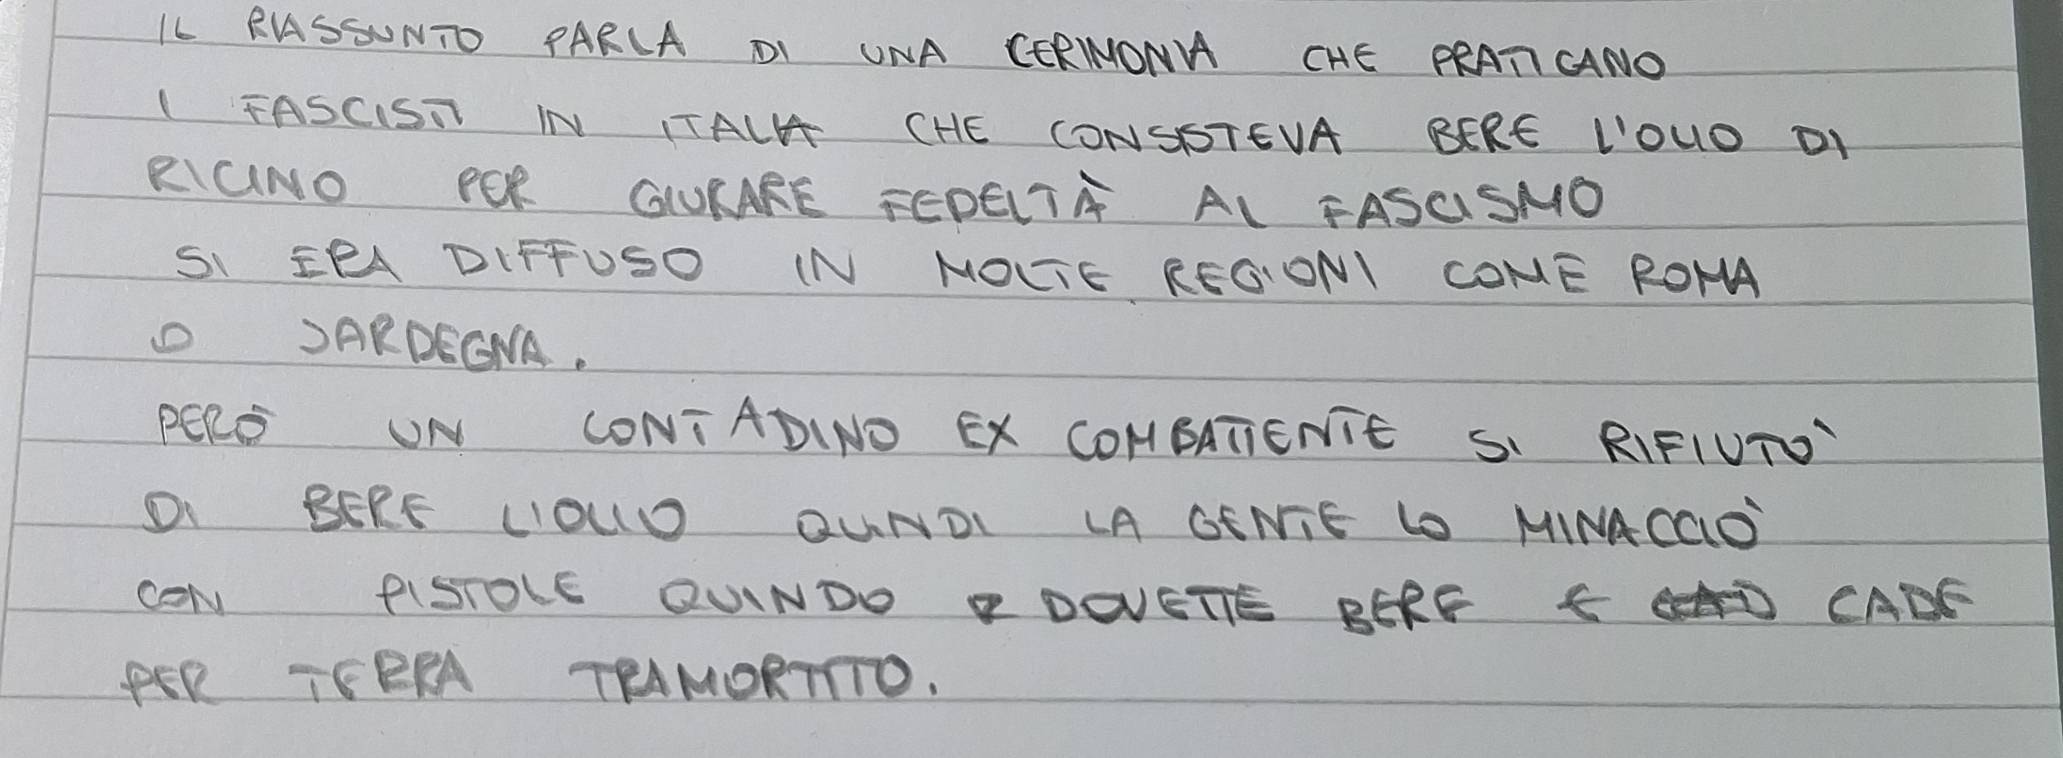 IL RIASSUNTO PARLA DI UNA CERIMONIA CHE PRATICANO
I FASCISTI IN ITALIA CHE CONSISTEVA BERE L'OLIO DI
RICINO PER GIURARE FEDELTÀ AL FASCISMO
SI ERA DIFFUSO IN MOLTE REGIONI COME ROMA
O SARDEGNA.
PERÒ UN CONTADINO EX COMBATTENTE SI RIFIUTO'
DI BERE L'OLIO QUINDI LA GENTE LO MINACCIÒ
CON PISTOLE QUINDO DOVETTE BERE E CADE
PER TERRA TRAMORTITO.